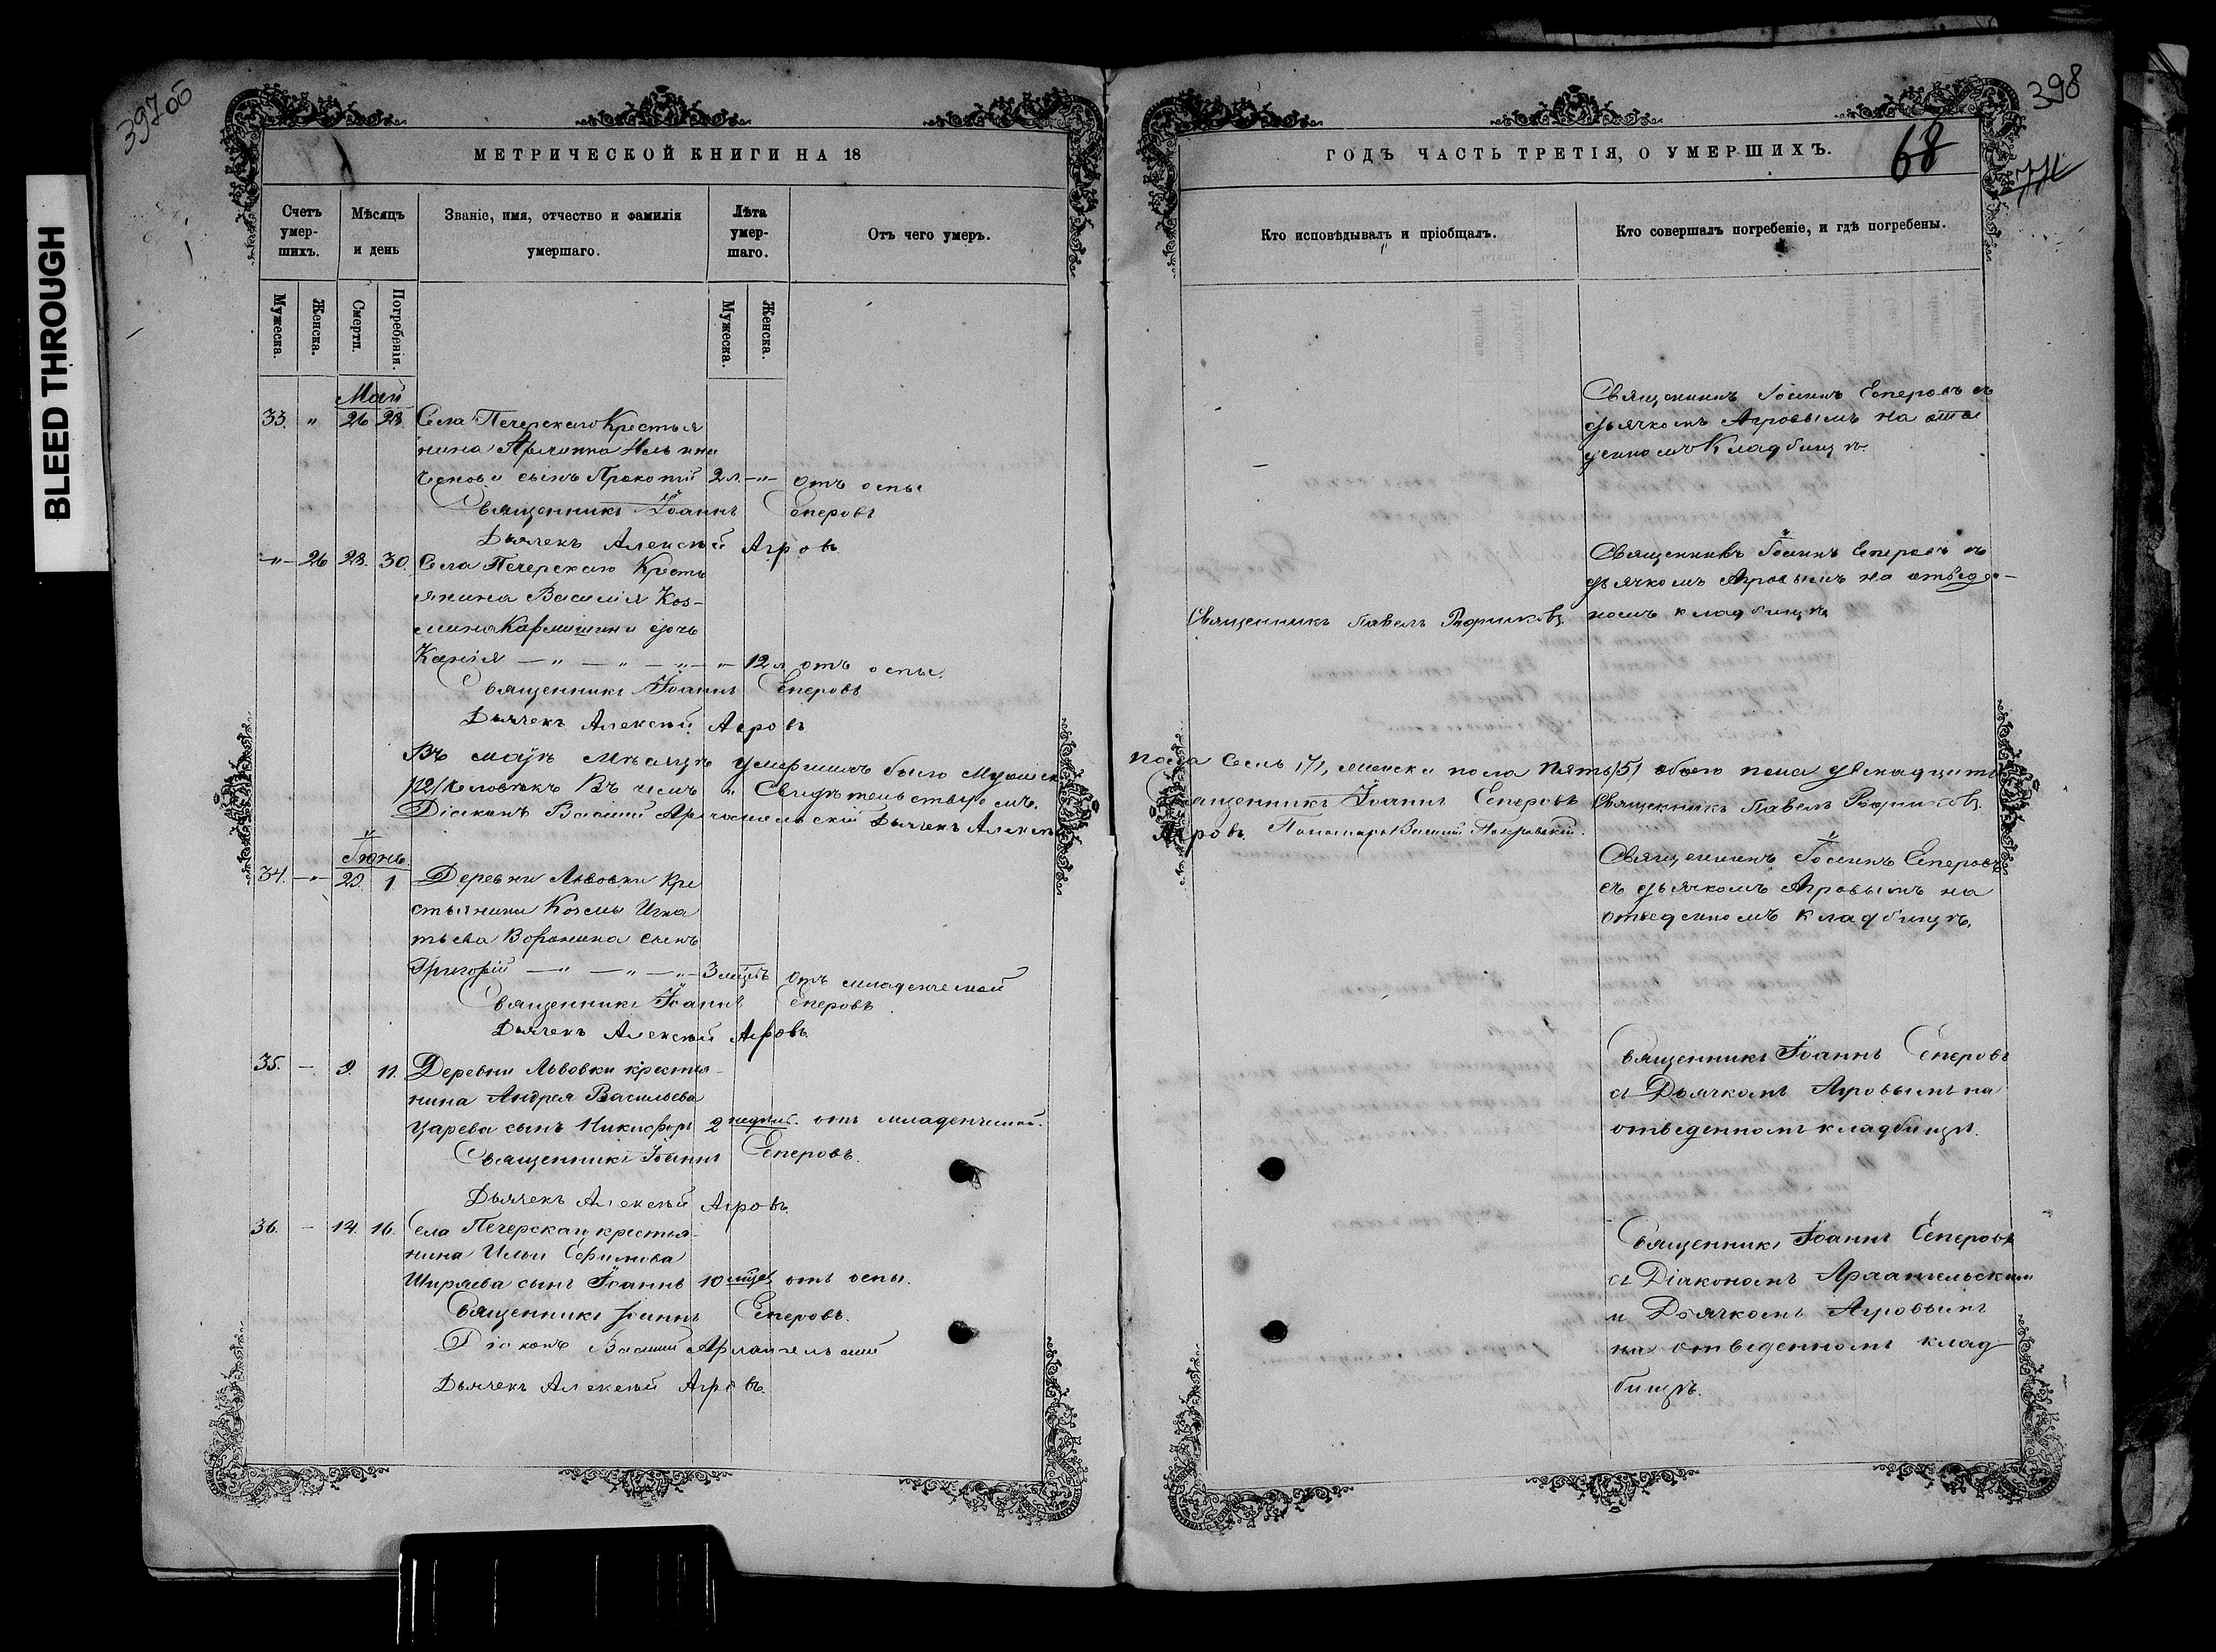 BLEED THROUGH
397об
МЕТРИЧЕСКОЙ КНИГИ НА 18
Счетъ умер-шихъ.
Мѣсяцъ и день
Званіе, имя, отчество и фамилія умершаго.
Лѣта умер-шаго.
Отъ чего умеръ.
Мужеска.
Женска.
Смерти.
Погребенія.
Мужеска.
Женска.
Май
33. „ 26 28. Села Печерскаго Крестья
нина
сынъ Прокопій 2 л. -„- отъ оспы
Священникъ Іоаннъ Еперовъ
Дьячекъ Алексѣй Агровъ
-„- 26 28. 30. Села Печерскаго Кресть
янина Василія Коз-
мина дочь
-„- -„- -„- 12 л отъ оспы.
Священникъ Іоаннъ Еперовъ
Дьячекъ Алексѣй Агровъ
Въ маѣ мѣсяцѣ умершихъ было
/12/ человѣкъ Въ чемъ и Свидѣтельствуемъ.
Діаконъ Василій Архангельскій Дьячекъ Алексѣй
Іюнь.
34. -„- 29. 1 Деревни Львовки Кре
стьянина Козьмы Игна
тьева Воронина сынъ
Григорій -„- -„- -„- 3 мѣсяцъ отъ младенческой
Священникъ Іоаннъ Еперовъ
Дьячекъ Алексѣй Агровъ.
35. - 9. 11. Деревни Львовки крестья-
нина Андрея Васильева
Царева сынъ Никифоръ 2 недѣль. отъ младенческой.
Священникъ Іоаннъ Еперовъ.
Дьячекъ Алексѣй Агровъ.
36. - 14. 16. Села Печерскаго крестья-
нина Ильи Ефимова
Ширяева сынъ Іоаннъ 10 мѣсяц. отъ оспы.
Священникъ Іоаннъ Еперовъ.
Діаконъ Василій Архангельскій
Дьячекъ Алексѣй Агровъ.
398
ГОДЪ ЧАСТЬ ТРЕТІЯ, О УМЕРШИХЪ.
68
Кто исповѣдывалъ и пріобщалъ.
Кто совершалъ погребеніе, и гдѣ погребены.
Священникъ Іоаннъ Еперовъ съ
дьячкомъ Агровымъ на отве
денномъ Кладбищѣ.
Священникъ Іоаннъ Еперовъ съ
дьячкомъ Агровымъ на отведен-
номъ кладбищѣ
Священникъ Павелъ
пола Семь /7/, женска пола пять /5/ обоего пола двенадцать
Священникъ Іоаннъ Еперовъ Священникъ Павелъ
Агровъ. Пономарь Василій Покровскій.
Священникъ Іоаннъ Еперовъ
съ дьячкомъ Агровымъ на
отведенномъ кладбищѣ.
Священникъ Іоаннъ Еперовъ
съ Дьячкомъ Агровымъ на
отведенномъ кладбищѣ.
Священникъ Іоаннъ Еперовъ
съ Діакономъ Архангельскимъ
и Дьячкомъ Агровымъ
на отведенномъ клад-
бищѣ.